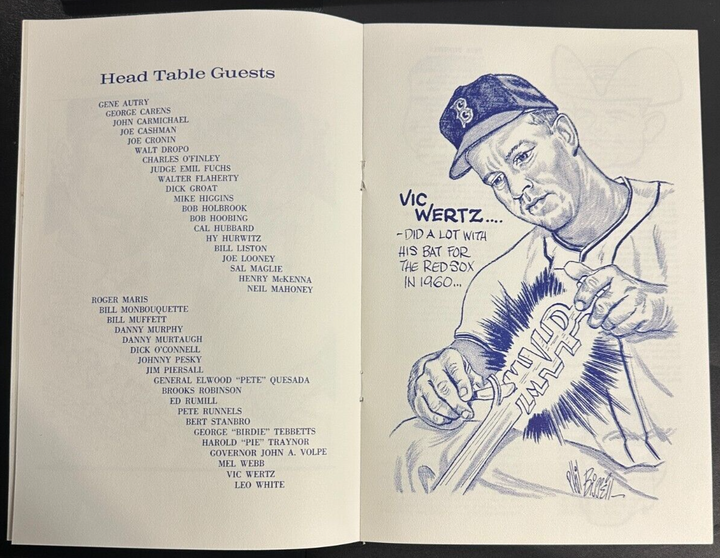 Head Table Guests
GENE AUTRY
GEORGE CARENS
JOHN CARMICHAEL
JOE CASHMAN
JOE CRONIN
WALT DROPO
CHARLES O'FINLEY
JUDGE EMIL FUCHS
WALTER FLAHERTY
DICK GROAT
MIKE HIGGINS
BOB HOLBROOK
BOB HOOBING
CAL HUBBARD
HY HURWITZ
BILL LISTON
JOE LOONEY
SAL MAGLIE
HENRY McKENNA
NEIL MAHONEY
ROGER MARIS
BILL MONBOUQUETTE
BILL MUFFETT
DANNY MURPHY
DANNY MURTAUGH
DICK O'CONNELL
JOHNNY PESKY
JIM PIERSALL
GENERAL ELWOOD "PETE" QUESADA
BROOKS ROBINSON
ED RUMILL
PETE RUNNELS
BERT STANBRO
GEORGE "BIRDIE" TEBBETTS
HAROLD "PIE" TRAYNOR
GOVERNOR JOHN A. VOLPE
MEL WEBB
VIC WERTZ
LEO WHITE
B
VIC
WERTZ....
-DID A LOT WITH
HIS BAT FOR
THE RED SOX
IN 1960...